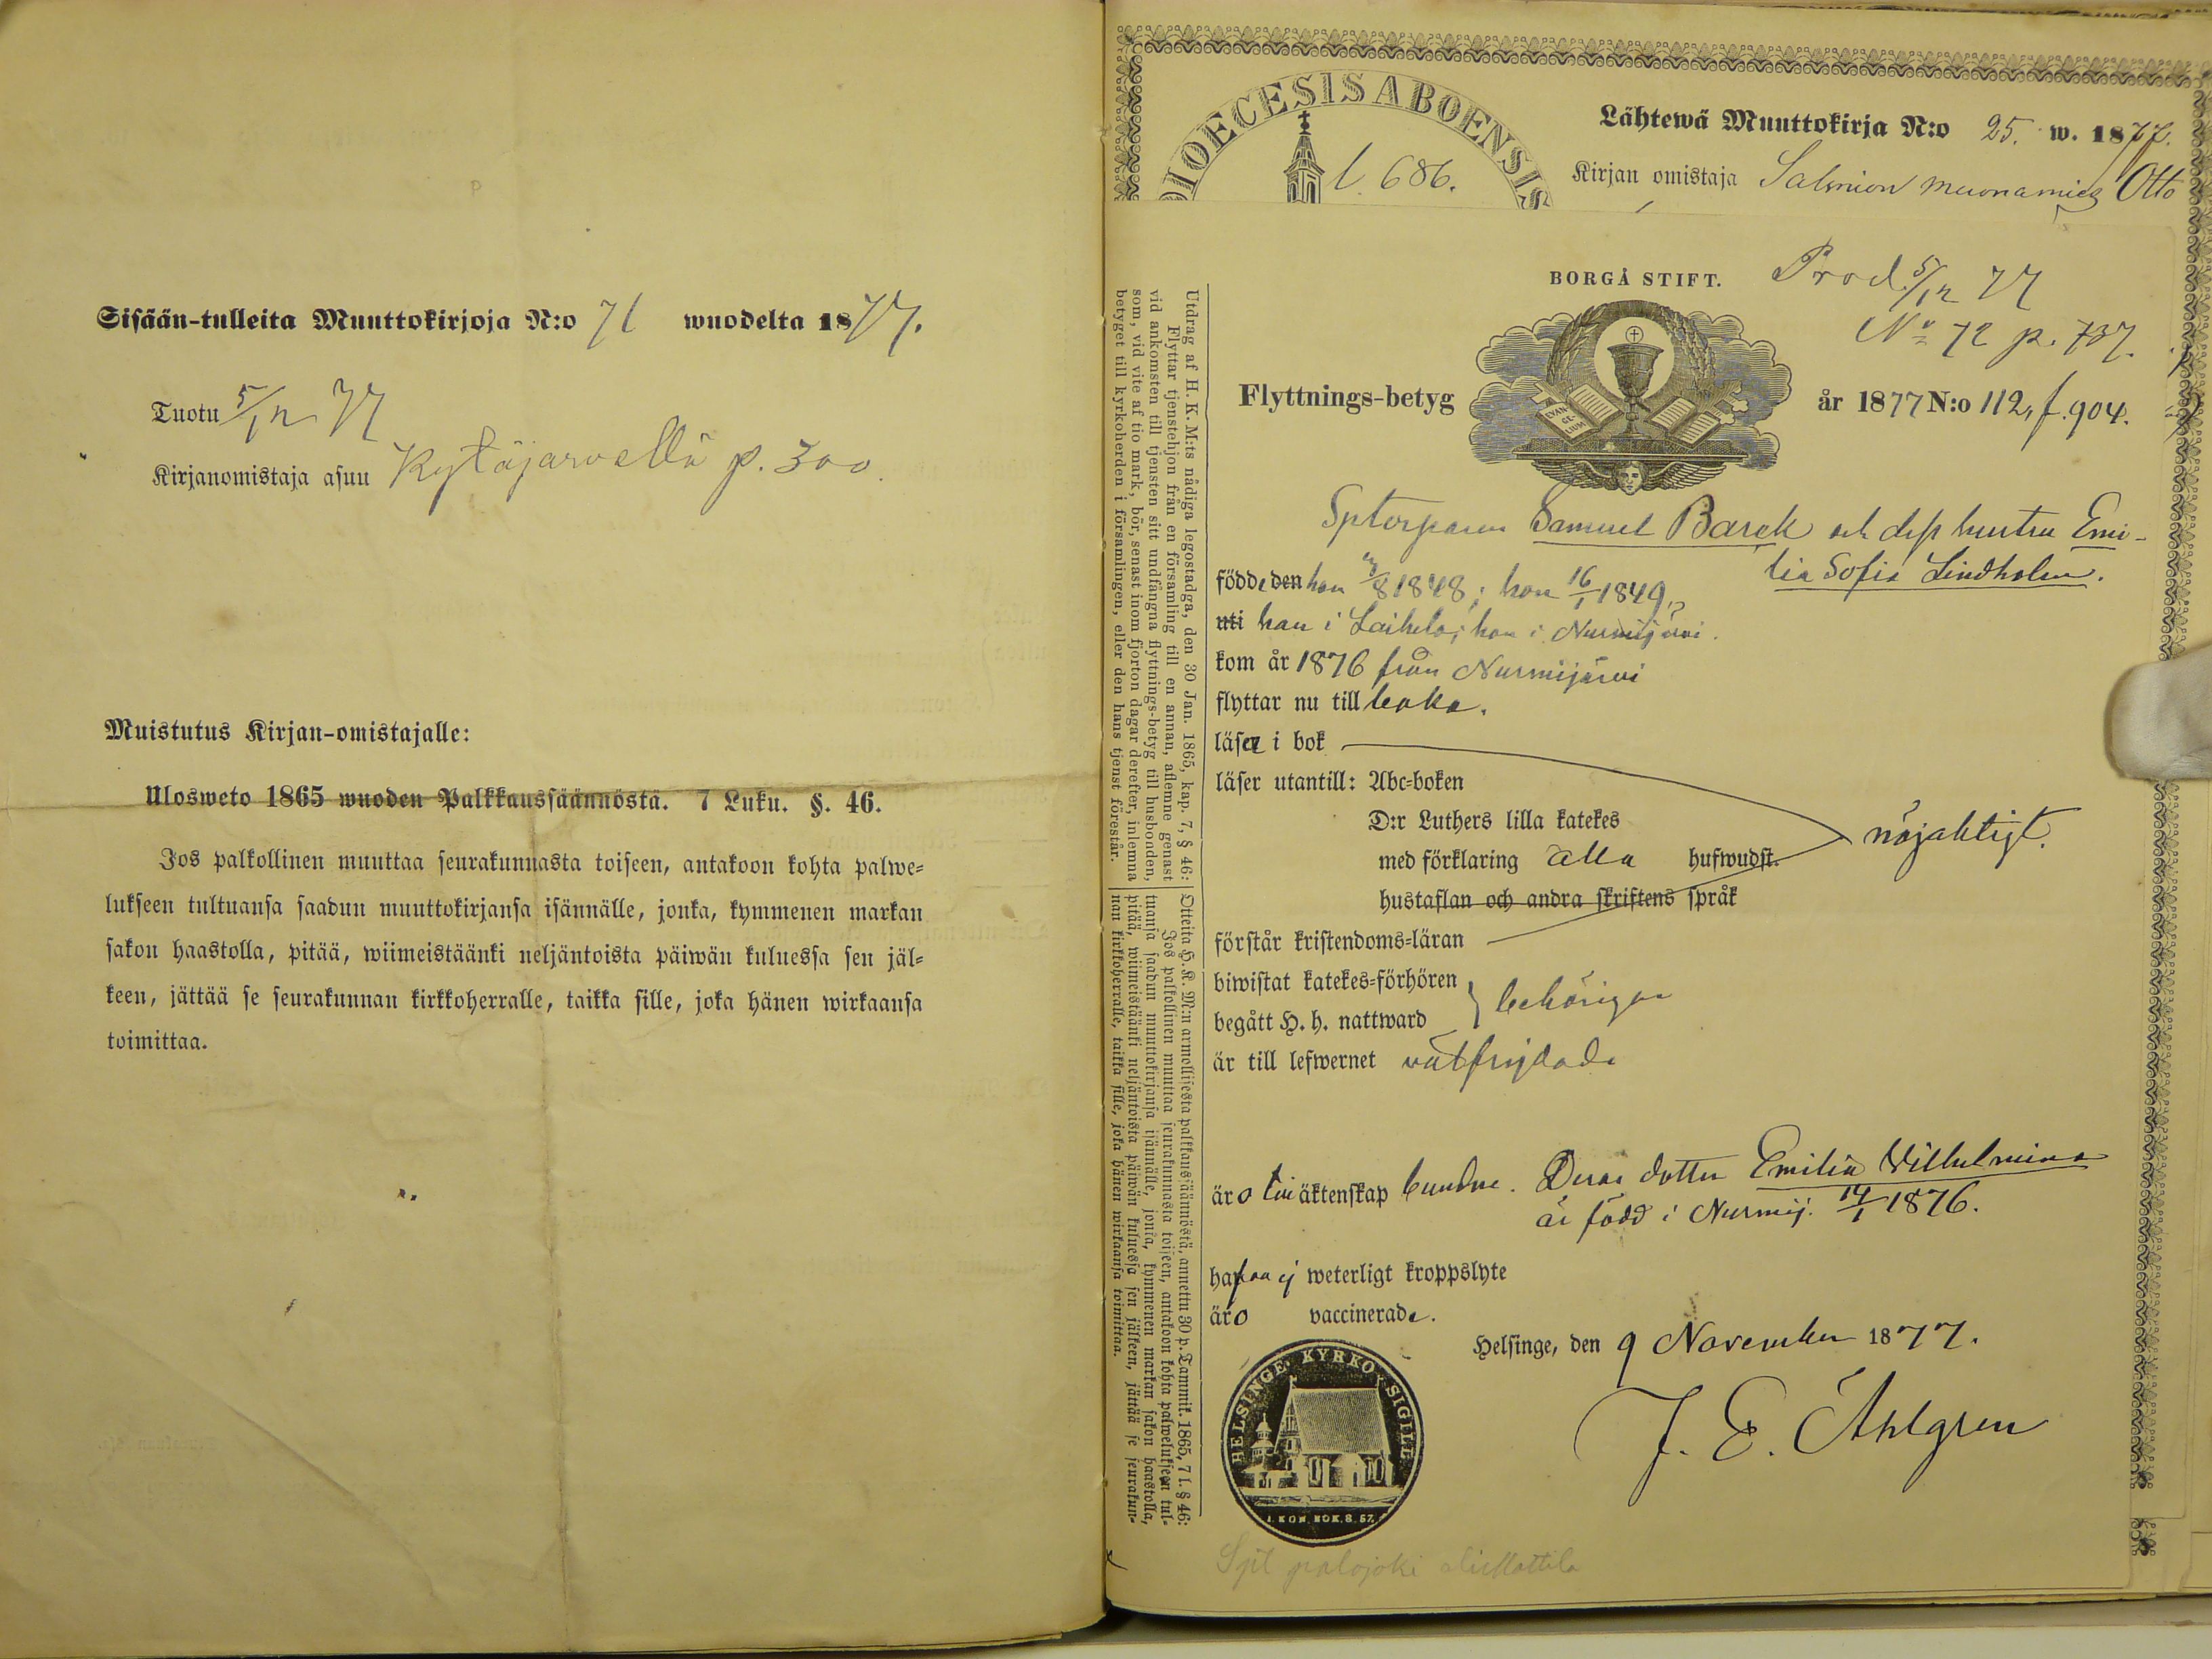 Sisään-tulleita Muuttokirjoja N:o 71 wuodelta 1877.
Tuotu 5/12 77
Kirjanomistaja asuu Kytäjärvellä p. 300.
Muistutus Kirjan-omistajalle:
Ulosweto 1865 wuoden Palkkaussäännöstä. 7 Luku. §. 46.
Jos palkollinen muuttaa seurakunnasta toiseen, antakoon kohta palwe-
lukseen tultuansa saadun muuttokirjansa isännälle, jonka, kymmenen markan
sakon haastolla, pitää, wiimeistäänki neljäntoista päiwän kuluessa sen jäl-
keen, jättää se seurakunnan kirkkoherralle, taikka sille, joka hänen wirkaansa
toimittaa.
DIOECESIS ABOENSIS
l. 686.
Lähtewä Muuttokirja N:o 25. w. 1877.
Kirjan omistaja Salmion muonamies Otto
BORGÅ STIFT. Prod. 5/12 77
No 72 p. 737.
EVAN-
GE-
LIUM
Flyttnings-betyg år 1877 N:o 112, f. 904.
Sptorparen Samuel Barck och dess hustru Emi-
lia Sofia Lindholm.
födde den han /8 1848; hon 16/1 1849,
uti han i Laihela; hon i Nurmijärvi.
kom år 1876 från Nurmijärvi
flyttar nu till baka.
läser i bok
läser utantill: Abc-boken
D:r Luthers lilla katekes
med förklaring alla hufwudst. nöjaktigt.
hustaflan och andra skriftens språk
förstår kristendoms-läran
biwistat katekes-förhören
begått H. h. nattward } behörigen
är till lefwernet välfrejdade
äro i äktenskap bundne. Deras dotter Emilia Wilhelmina
är född i Nurmij. 14/1 1876.
hafwa ej weterligt kroppslyte
äro vaccinerade.
Helsinge, den 9 November 1877.
J. E. Åhlgren
HELSINGE KYRKO SIGILL
1. KON. BOK. 8. 57.
Utdrag af H. K. M:ts nådiga legostadga, den 30 Jan. 1865, kap. 7, § 46:
Flyttar tjenstehjon från en församling till en annan, aflemne genast
vid ankomsten till tjensten sitt undfångna flyttnings-betyg till husbonden,
som, vid vite af tio mark, bör, senast inom fjorton dagar derefter, inlemna
betyget till kyrkoherden i församlingen, eller den hans tjenst förestår.
Otteita H. K. M:n armollisesta palkkaussäännöstä, annettu 30 p. Tammik. 1865, 7 l. § 46:
Jos palkollinen muuttaa seurakunnasta toiseen, antakoon kohta palwelukseen tul-
tuansa saadun muuttokirjansa isännälle, jonka, kymmenen markan sakon haastolla,
pitää, wiimeistäänki neljäntoista päiwän kuluessa sen jälkeen, jättää se seurakun-
nan kirkkoherralle, taikka sille, joka hänen wirkaansa toimittaa.
palojoki